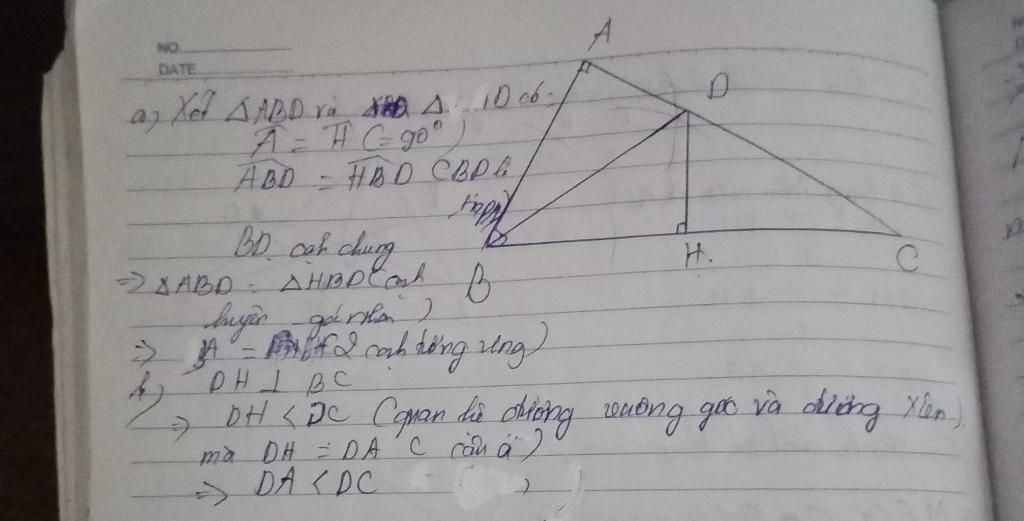 NO.
DATE
A
D
B
H.
C
a, Xét ΔABD và Δ ID có:
Â = Ĥ (=90°)
ABD = HBD (BD
BD. cạh chung
=> ΔABD = ΔHBD (cạh
huyền góc nhọn)
=> A = 2 cạh tương ứng)
b, DH ⊥ BC
=> DH < DC (quan hệ đường vuông góc và đường xiên)
mà DH = DA ( câu a)
=> DA < DC